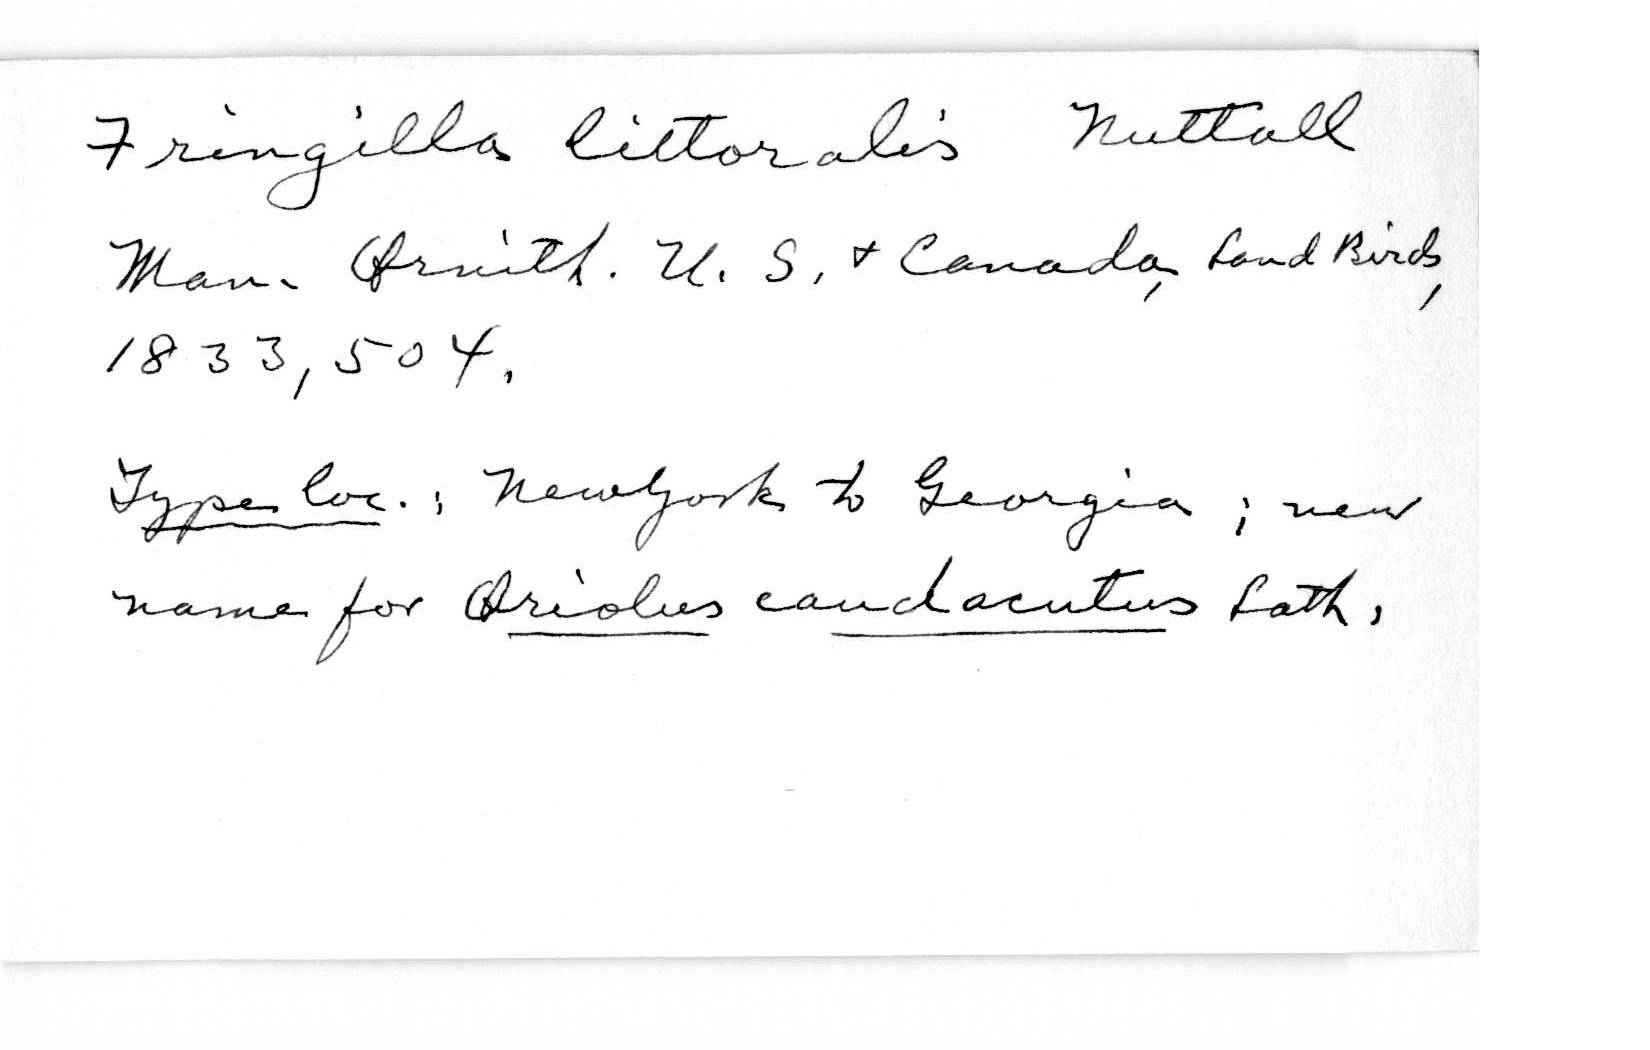 Fringilla littoralis Nuttall
Man. Ornith. U. S. + Canada, Land Birds,
1833, 504.
Type loc.: New York to Georgia; new
name for Oriolus caudacutus Lath.